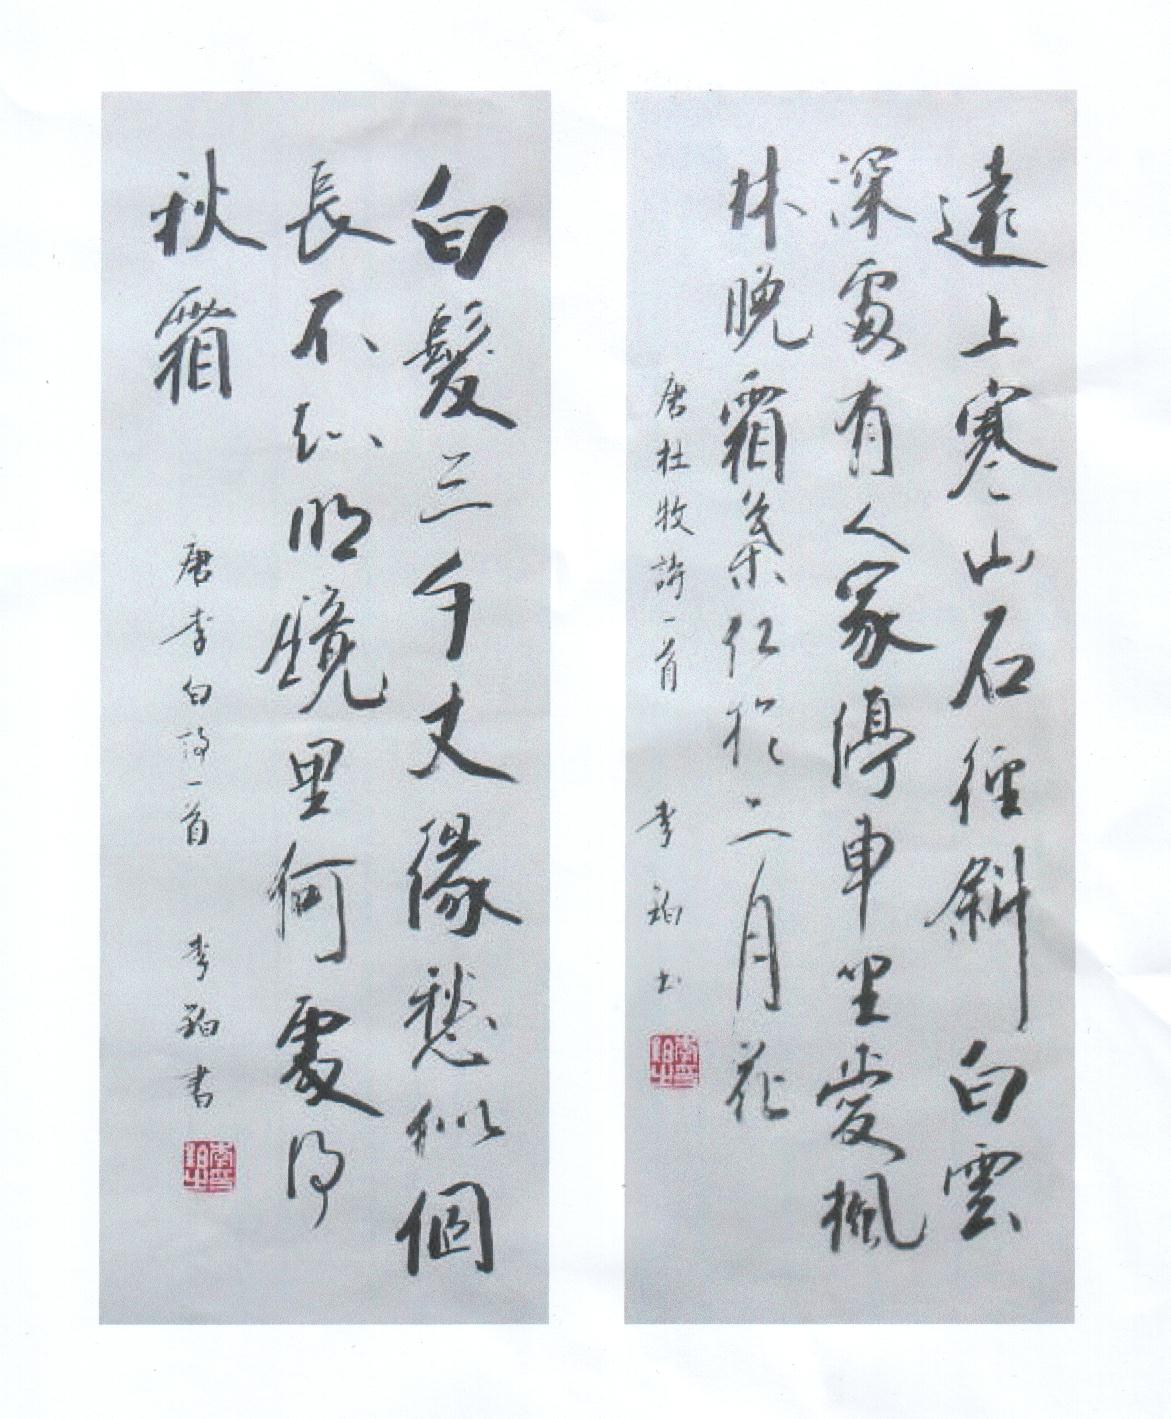 遠上寒山石徑斜白雲
深處有人家停車坐愛楓
林晚霜葉紅於二月花
唐杜牧詩一首 李 书
白髮三千丈緣愁似個
長不知明鏡里何處得
秋霜
唐李白詩一首 李 書